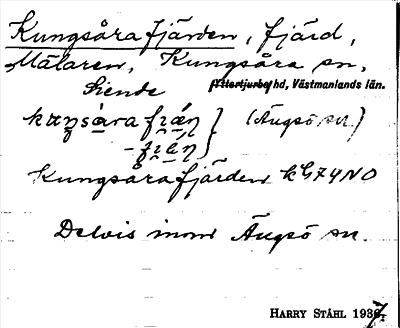 Kungsåra fjärden, fjärd,
Mälaren, Kungsåra sn,
Siende
Yttertjurbo hd, Västmanlands län.
kuŋsåra fjæṇ } (Ängsö sn.)
-fjæṇ }
Kungsårafjärden kG74NO
Delvis inom Ängsö sn.
HARRY STÅHL 1937.